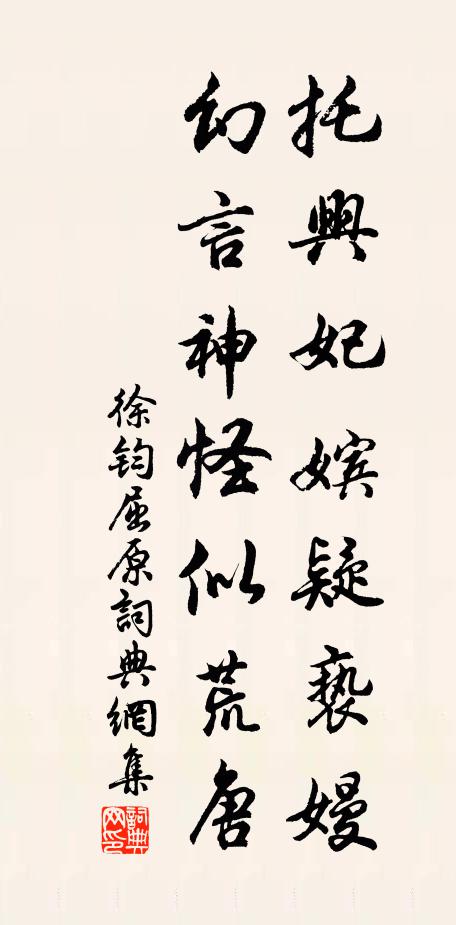 托興妃嬪疑褻嫚
幻言神怪似荒唐
徐鈞屈原詞典網集
詞典网印